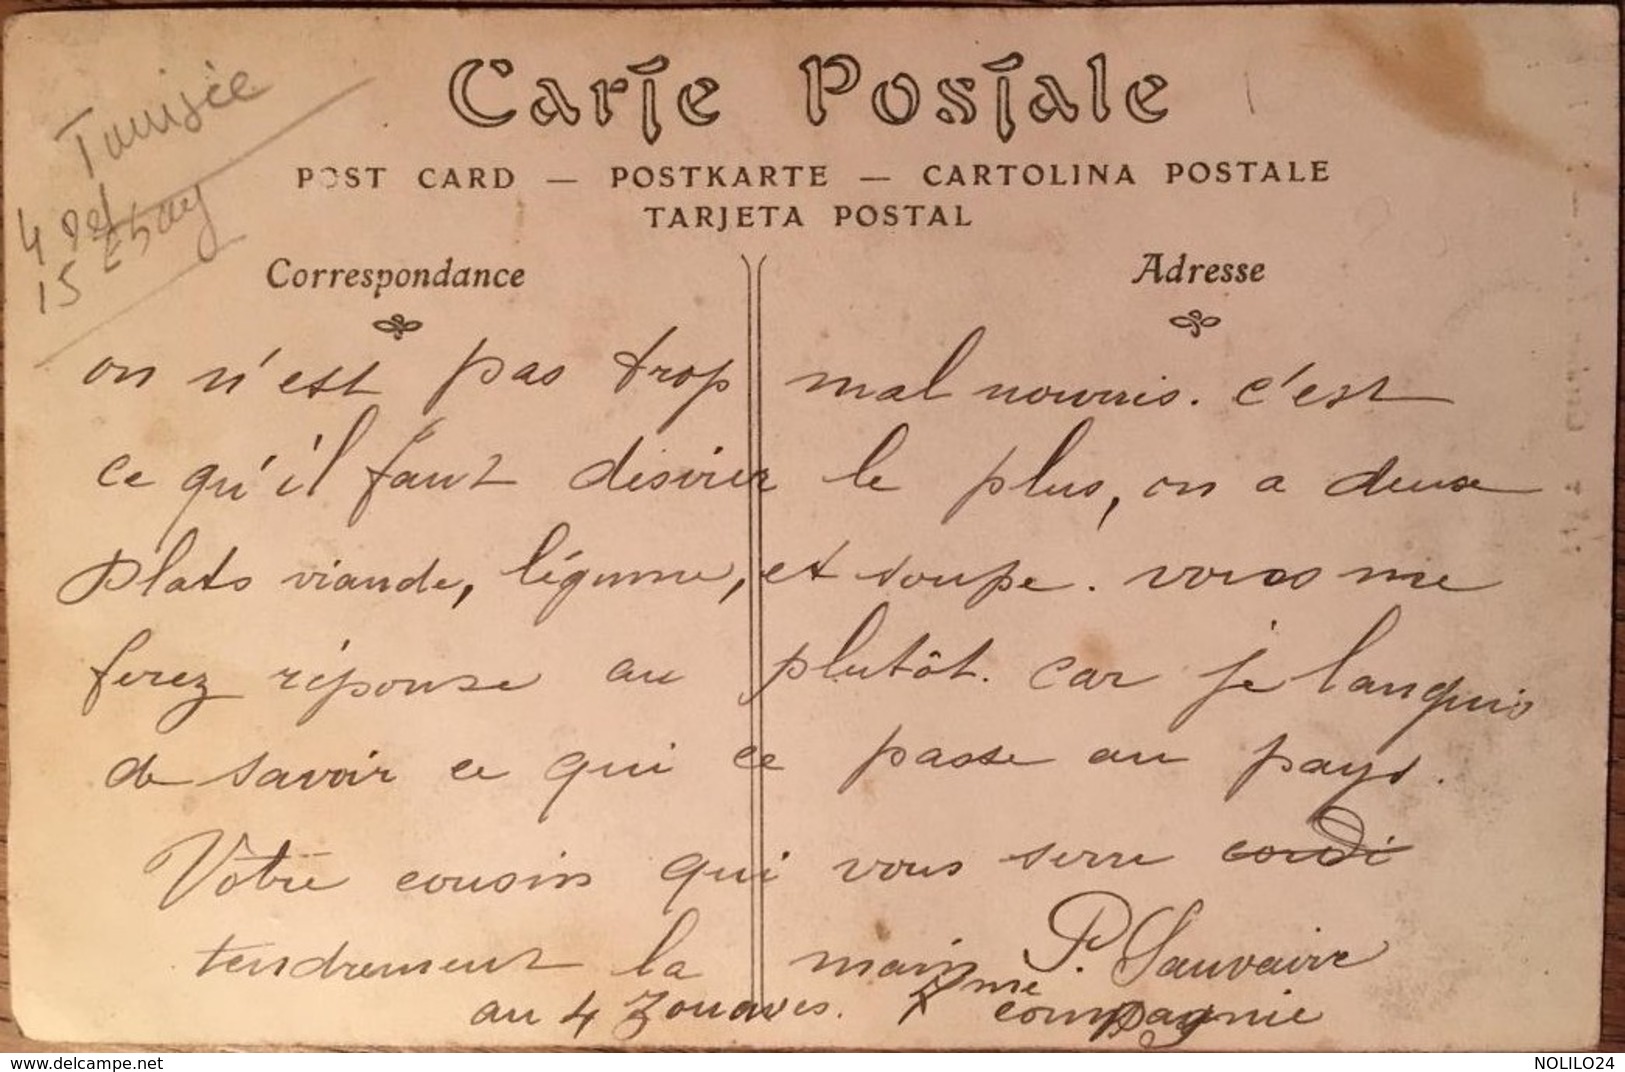 Carte Postale
POST CARD — POSTKARTE — CARTOLINA POSTALE
TARJETA POSTAL
Tunisie
4
15
Correspondance
Adresse
on n'est pas trop mal nourris. c'est
ce qu'il faut désirer le plus, on a deux
plats viande, légume, et soupe. vous me
ferez réponse au plutôt. car je languis
de savoir ce qui ce passe au pays.
Vôtre cousin qui vous serre cordi
tendrement la main P. Sauvaire
au 4 Zouaves. me compagnie
www.delcampe.net
NOLILO24